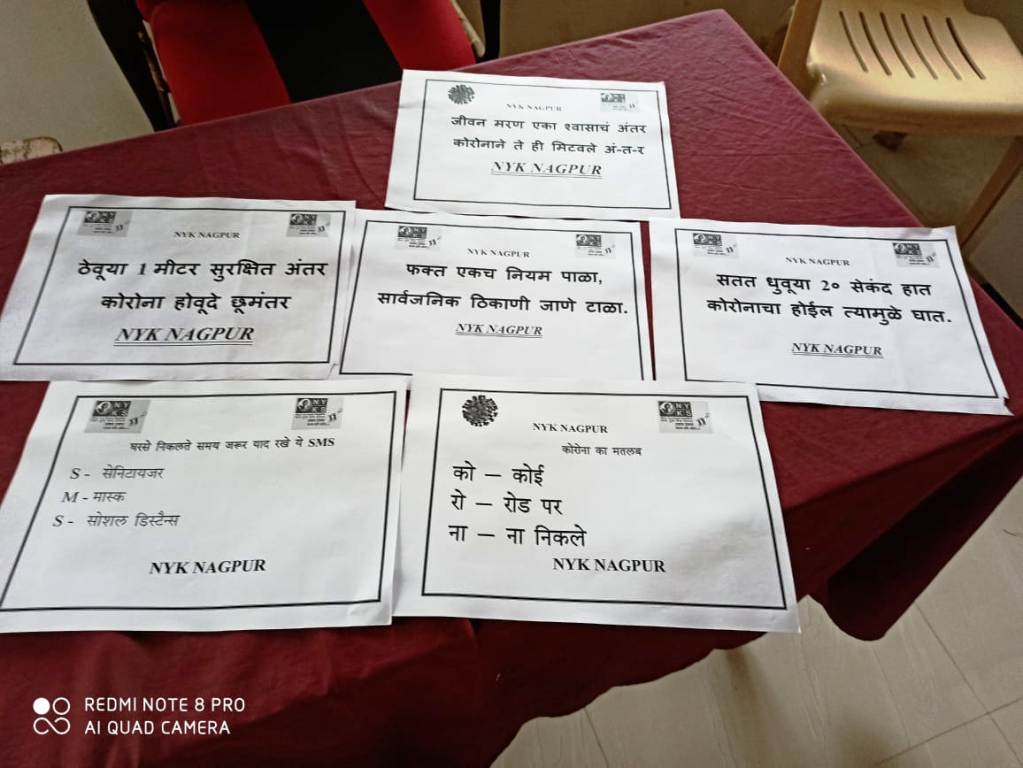 NYK NAGPUR
जीवन मरण एका श्वासाचं अंतर
कोरोनाने ते ही मिटवले अं-त-र
NYK NAGPUR
NYK NAGPUR
ठेवूया 1 मीटर सुरक्षित अंतर
कोरोना होवूदे छूमंतर
NYK NAGPUR
NYK NAGPUR
फक्त एकच नियम पाळा,
सार्वजनिक ठिकाणी जाणे टाळा.
NYK NAGPUR
NYK NAGPUR
सतत धुवूया 2० सेकंद हात
कोरोनाचा होईल त्यामुळे घात.
NYK NAGPUR
घरसे निकलते समय जरूर याद रखे ये SMS
S - सेनिटायजर
M - मास्क
S - सोशल डिस्टैन्स
NYK NAGPUR
NYK NAGPUR
कोरोना का मतलब
को – कोई
रो – रोड पर
ना – ना निकले
NYK NAGPUR
REDMI NOTE 8 PRO
AI QUAD CAMERA